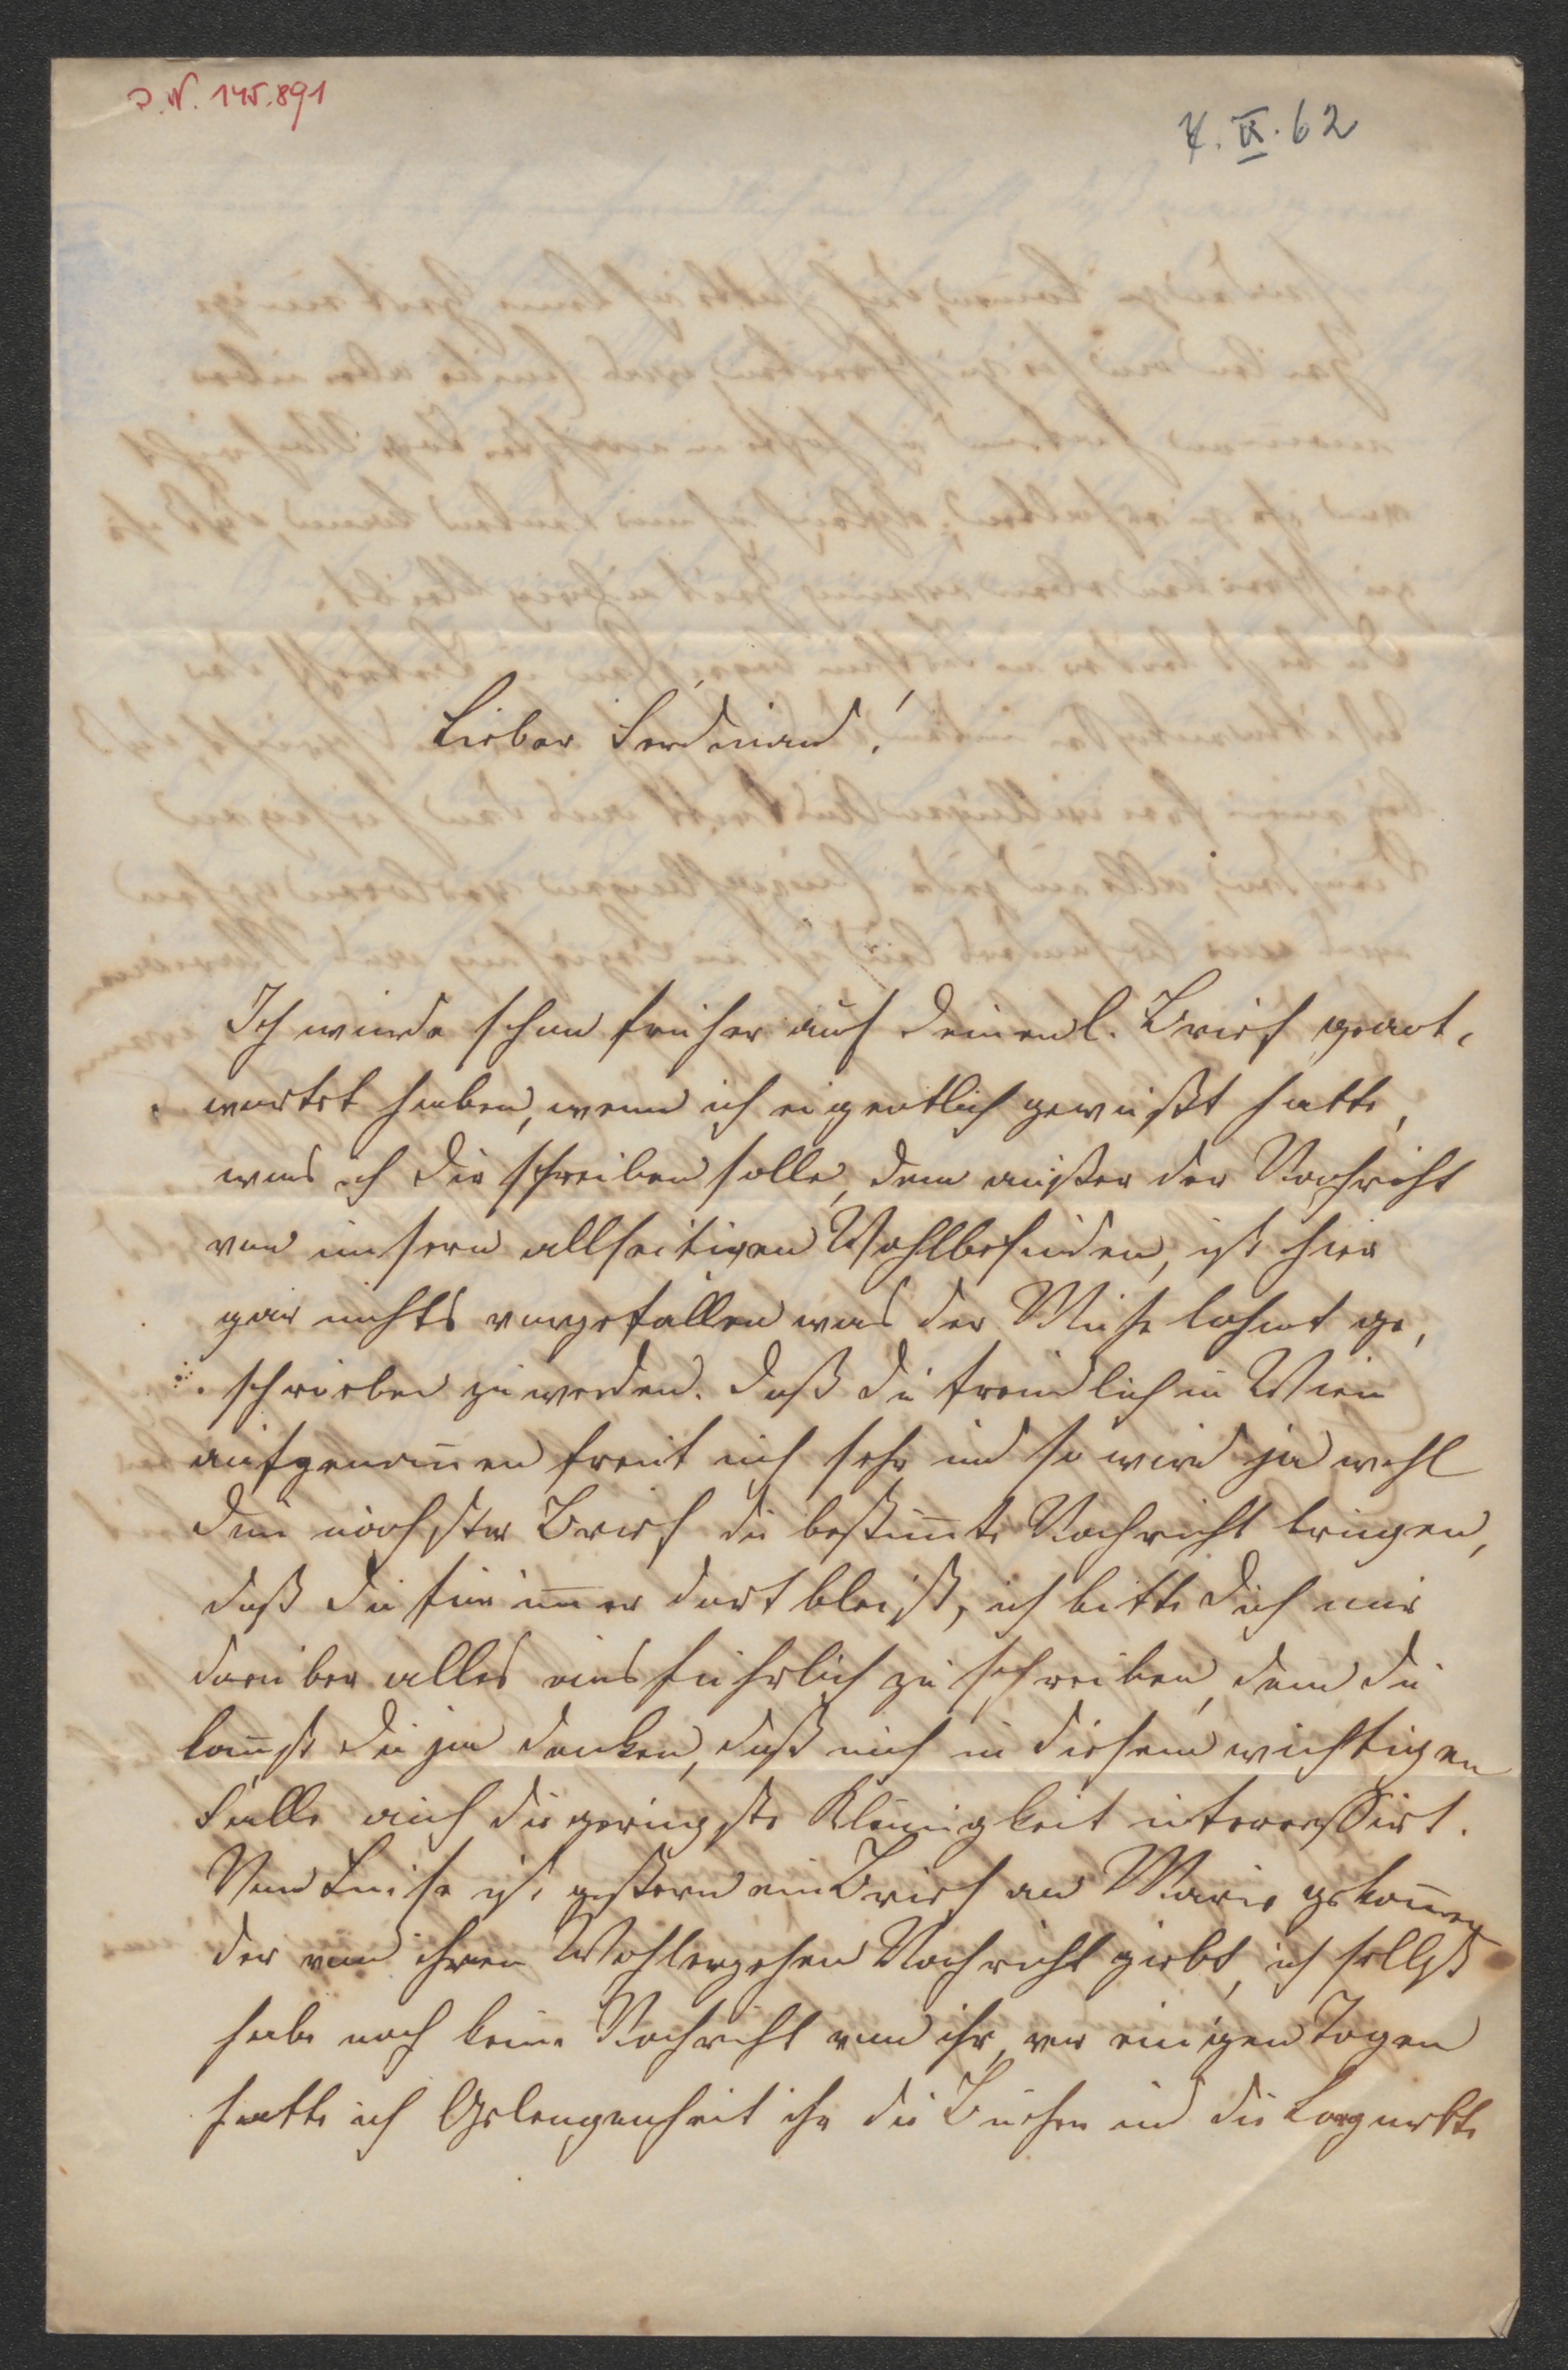 I. N. 145.891
4. IX. 62
Lieber Ferdinand!
Ich würde schon früher auf Deinen l. Brief geant,
wortet haben, wenn ich eigentlich gewußt hätte,
was ich Dir schreiben solle, denn außer der Nachricht
von unserm allseitigen Wohlbefinden, ist hier
gar nichts vorgefallen was der Mühe lohnt ge,
schrieben zu werden. Daß Du freundlich in Wien
aufgenom̄en freut mich sehr und so wird ja wohl
Dein nächster Brief die bestim̄te Nachricht bringen,
daß Du für im̄er dort bleibst, ich bitte Dich mir
darüber alles ausführlich zu schreiben, denn Du
kan̄st Dir ja denken, daß mich in diesem wichtigen
Falle auch die geringste Kleinigkeit interessirt.
Von Luise ist gestern ein Brief an Marie gekom̄en
der von ihren Wohlergehen Nachricht giebt, ich selbst
habe noch keine Nachricht von ihr, vor einigen Tagen
hatte ich Gelengenheit ihr die Bücher und die